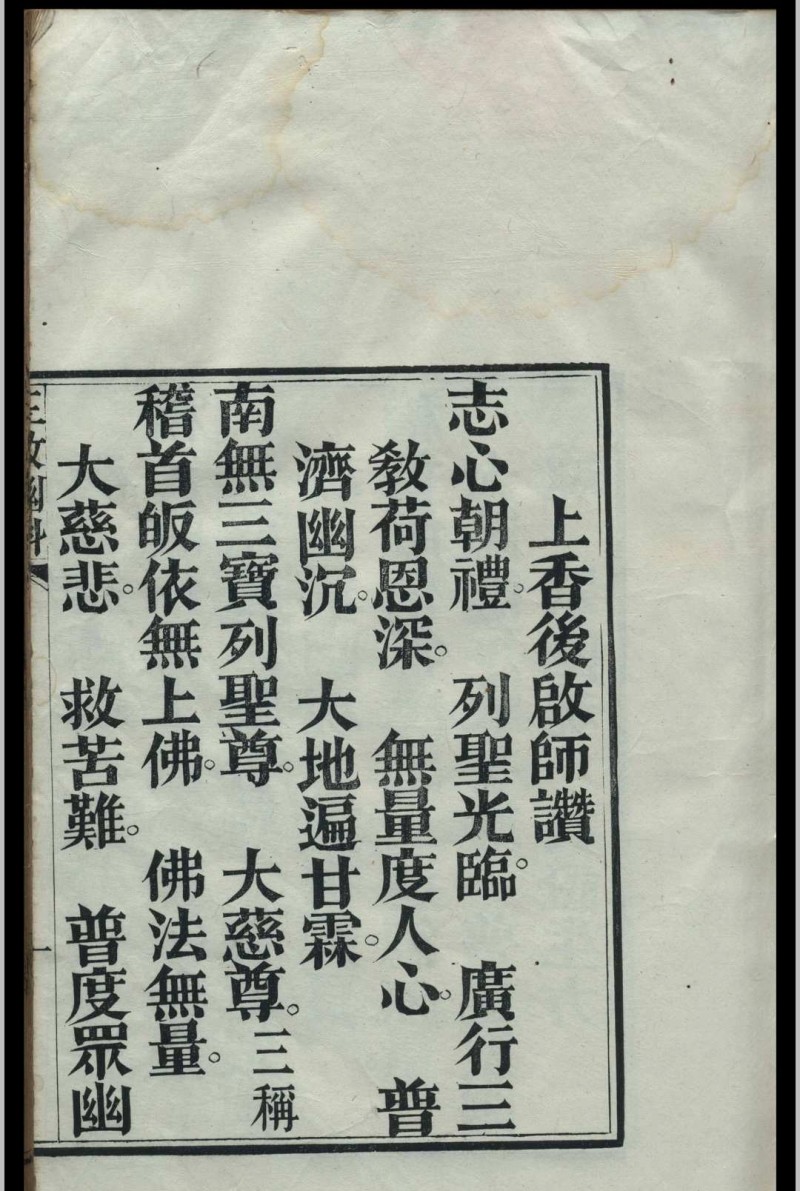 上香後啟師讚
志心朝禮。 列聖光臨。 廣行三
教荷恩深。 無量度人心。 普
濟幽沉。 大地遍甘霖。
南無三寶列聖尊。 大慈尊。三稱
稽首皈依無上佛。 佛法無量。
大慈悲。 救苦難。 普度眾幽
一